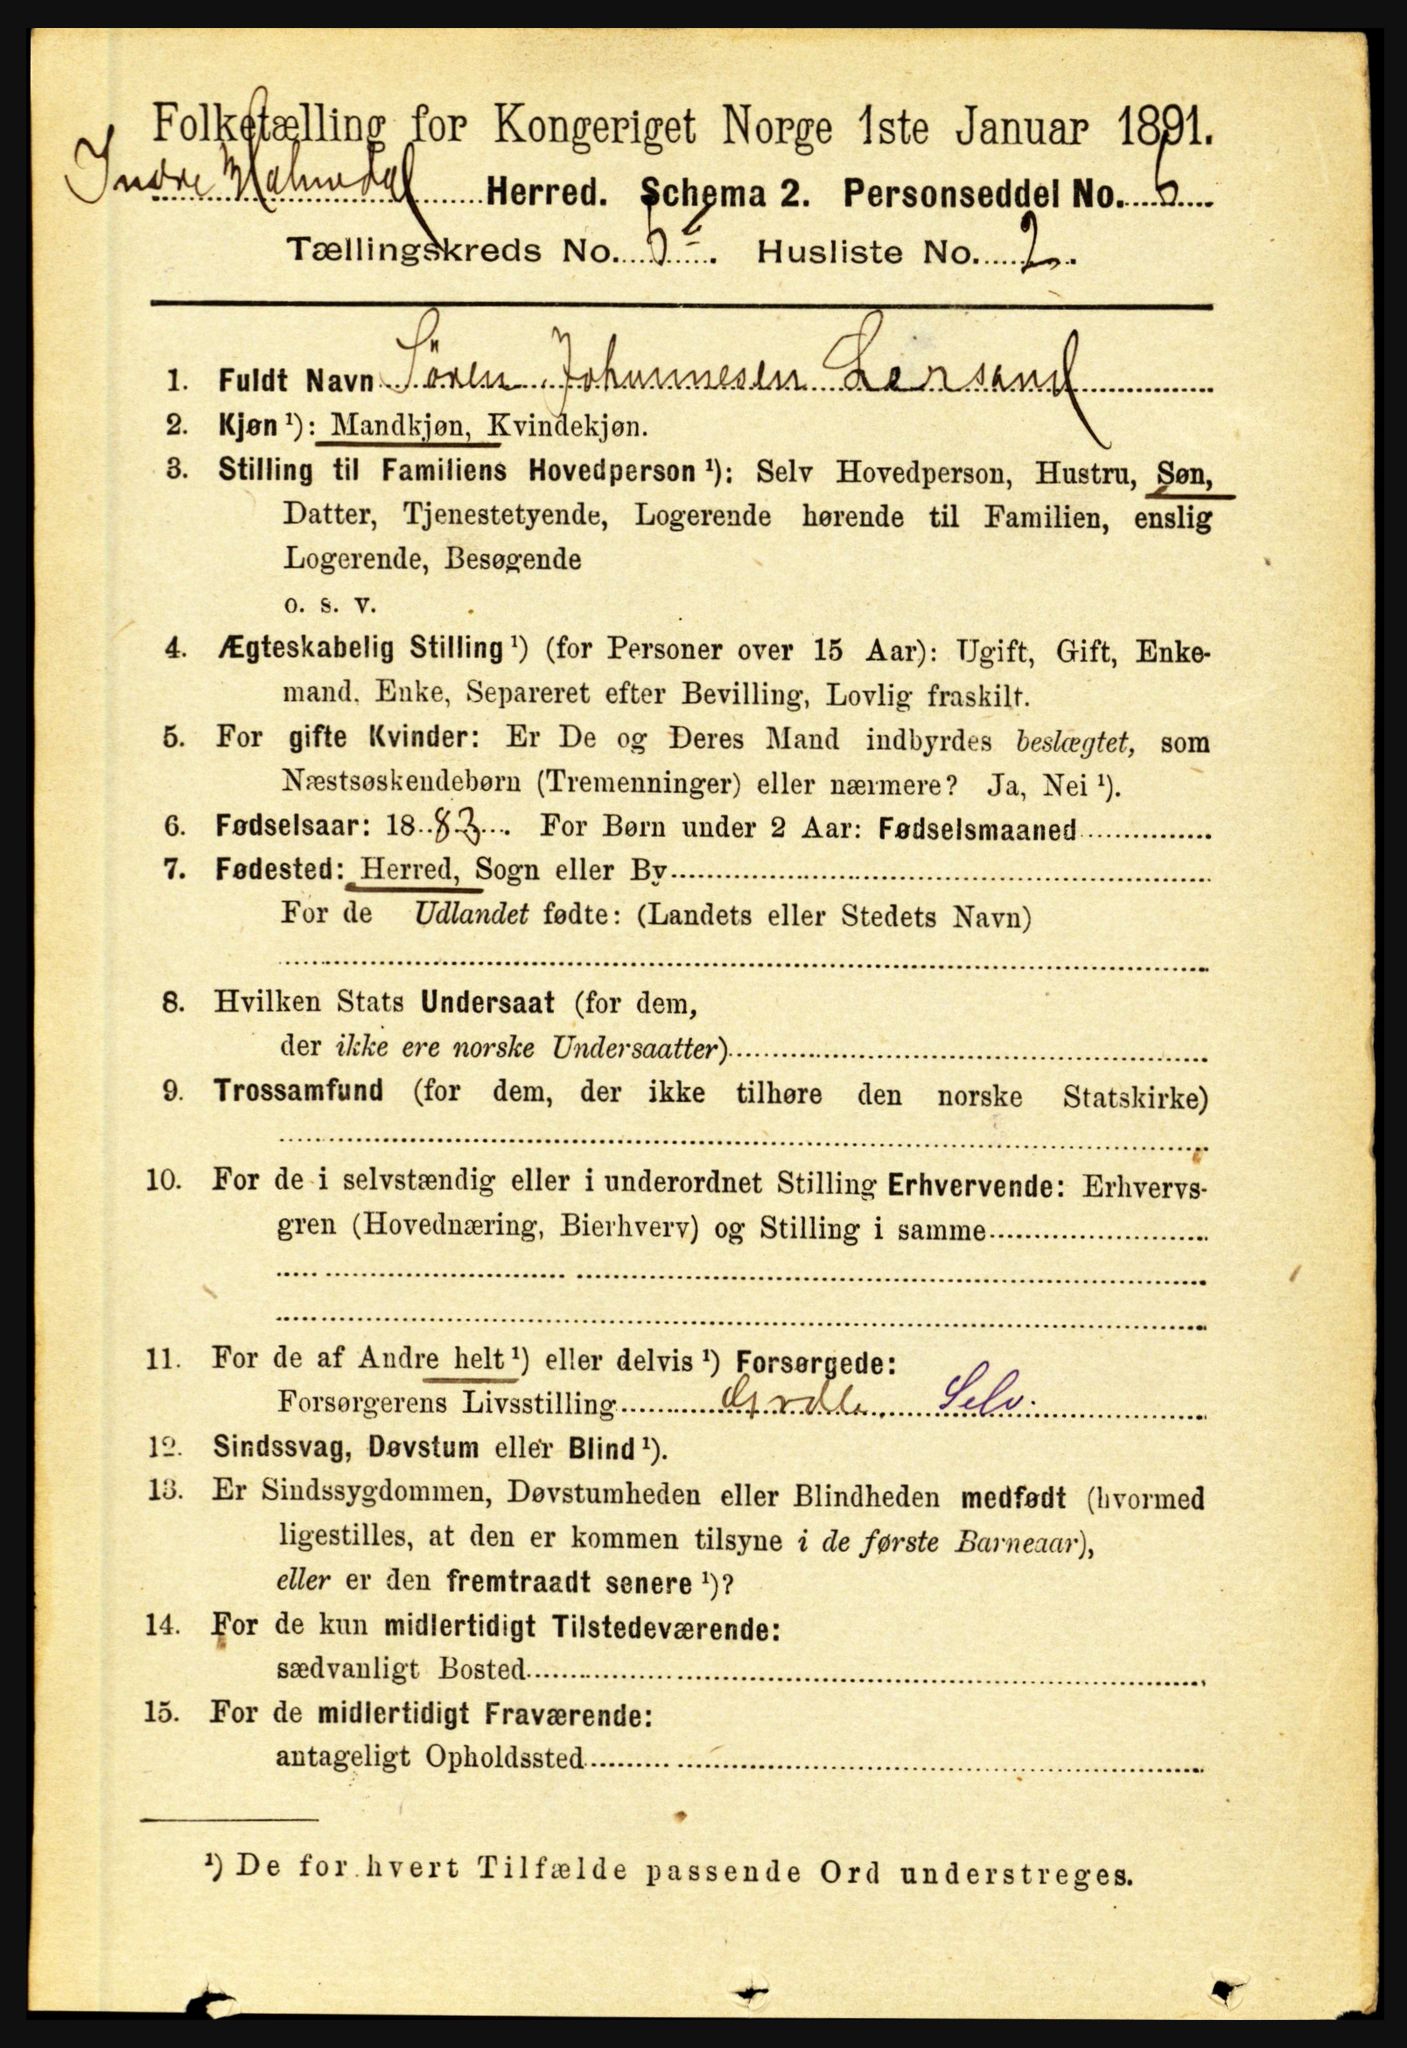 Folketælling for Kongeriget Norge 1ste Januar 1891.
Indre Holmedal Herred. Schema 2. Personseddel No. 6
Tællingskreds No. 5 Husliste No. 2.
1. Fuldt Navn Sören Johannesen Lersand
2. Kjøn ¹): Mandkjøn, Kvindekjøn.
3. Stilling til Familiens Hovedperson ¹): Selv Hovedperson, Hustru, Søn,
Datter, Tjenestetyende, Logerende hørende til Familien, enslig
Logerende, Besøgende
o. s. v.
4. Ægteskabelig Stilling ¹) (for Personer over 15 Aar): Ugift, Gift, Enke-
mand, Enke, Separeret efter Bevilling, Lovlig fraskilt.
5. For gifte Kvinder: Er De og Deres Mand indbyrdes beslægtet, som
Næstsøskendebørn (Tremenninger) eller nærmere? Ja, Nei ¹).
6. Fødselsaar: 18 83. For Børn under 2 Aar: Fødselsmaaned
7. Fødested: Herred, Sogn eller By
For de Udlandet fødte: (Landets eller Stedets Navn)
8. Hvilken Stats Undersaat (for dem,
der ikke ere norske Undersaatter)
9. Trossamfund (for dem, der ikke tilhøre den norske Statskirke)
10. For de i selvstændig eller i underordnet Stilling Erhvervende: Erhvervs-
gren (Hovednæring, Bierhverv) og Stilling i samme
11. For de af Andre helt ¹) eller delvis ¹) Forsørgede:
Forsørgerens Livsstilling Grdbr. Selv.
12. Sindssvag, Døvstum eller Blind ¹).
13. Er Sindssygdommen, Døvstumheden eller Blindheden medfødt (hvormed
ligestilles, at den er kommen tilsyne i de første Barneaar),
eller er den fremtraadt senere ¹)?
14. For de kun midlertidigt Tilstedeværende:
sædvanligt Bosted
15. For de midlertidigt Fraværende:
antageligt Opholdssted
¹) De for hvert Tilfælde passende Ord understreges.